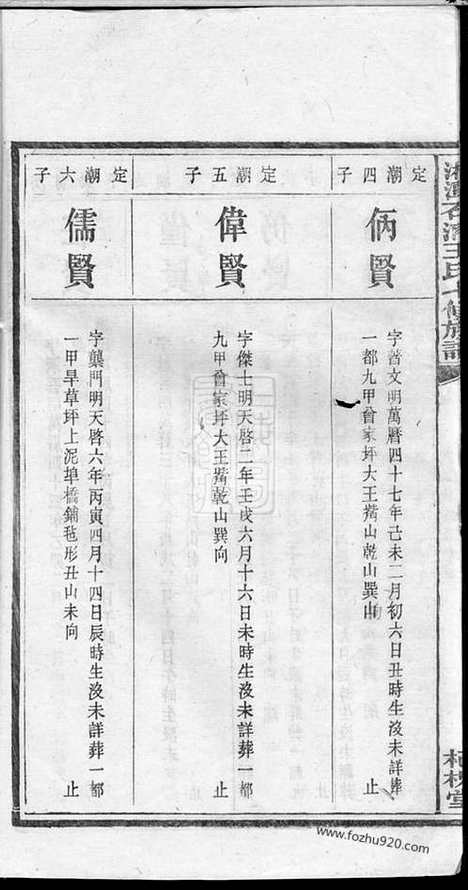 定潮四子
侢賢
字晋文明萬曆四十七年己未二月初六日丑時生沒未詳葬
一都九甲曾家坪大王嘴山乾山巽山
止
定潮五子
偉賢
字傑士明天啓二年壬戌六月十六日未時生沒未詳葬一都
九甲曾家坪大王嘴乾山巽向
止
定潮六子
儒賢
字龔門明天啓六年丙寅四月十四日辰時生沒未詳葬一都
一甲旱草坪上泥埠橋鋪毡形丑山未向
止
www.fozhu920.com